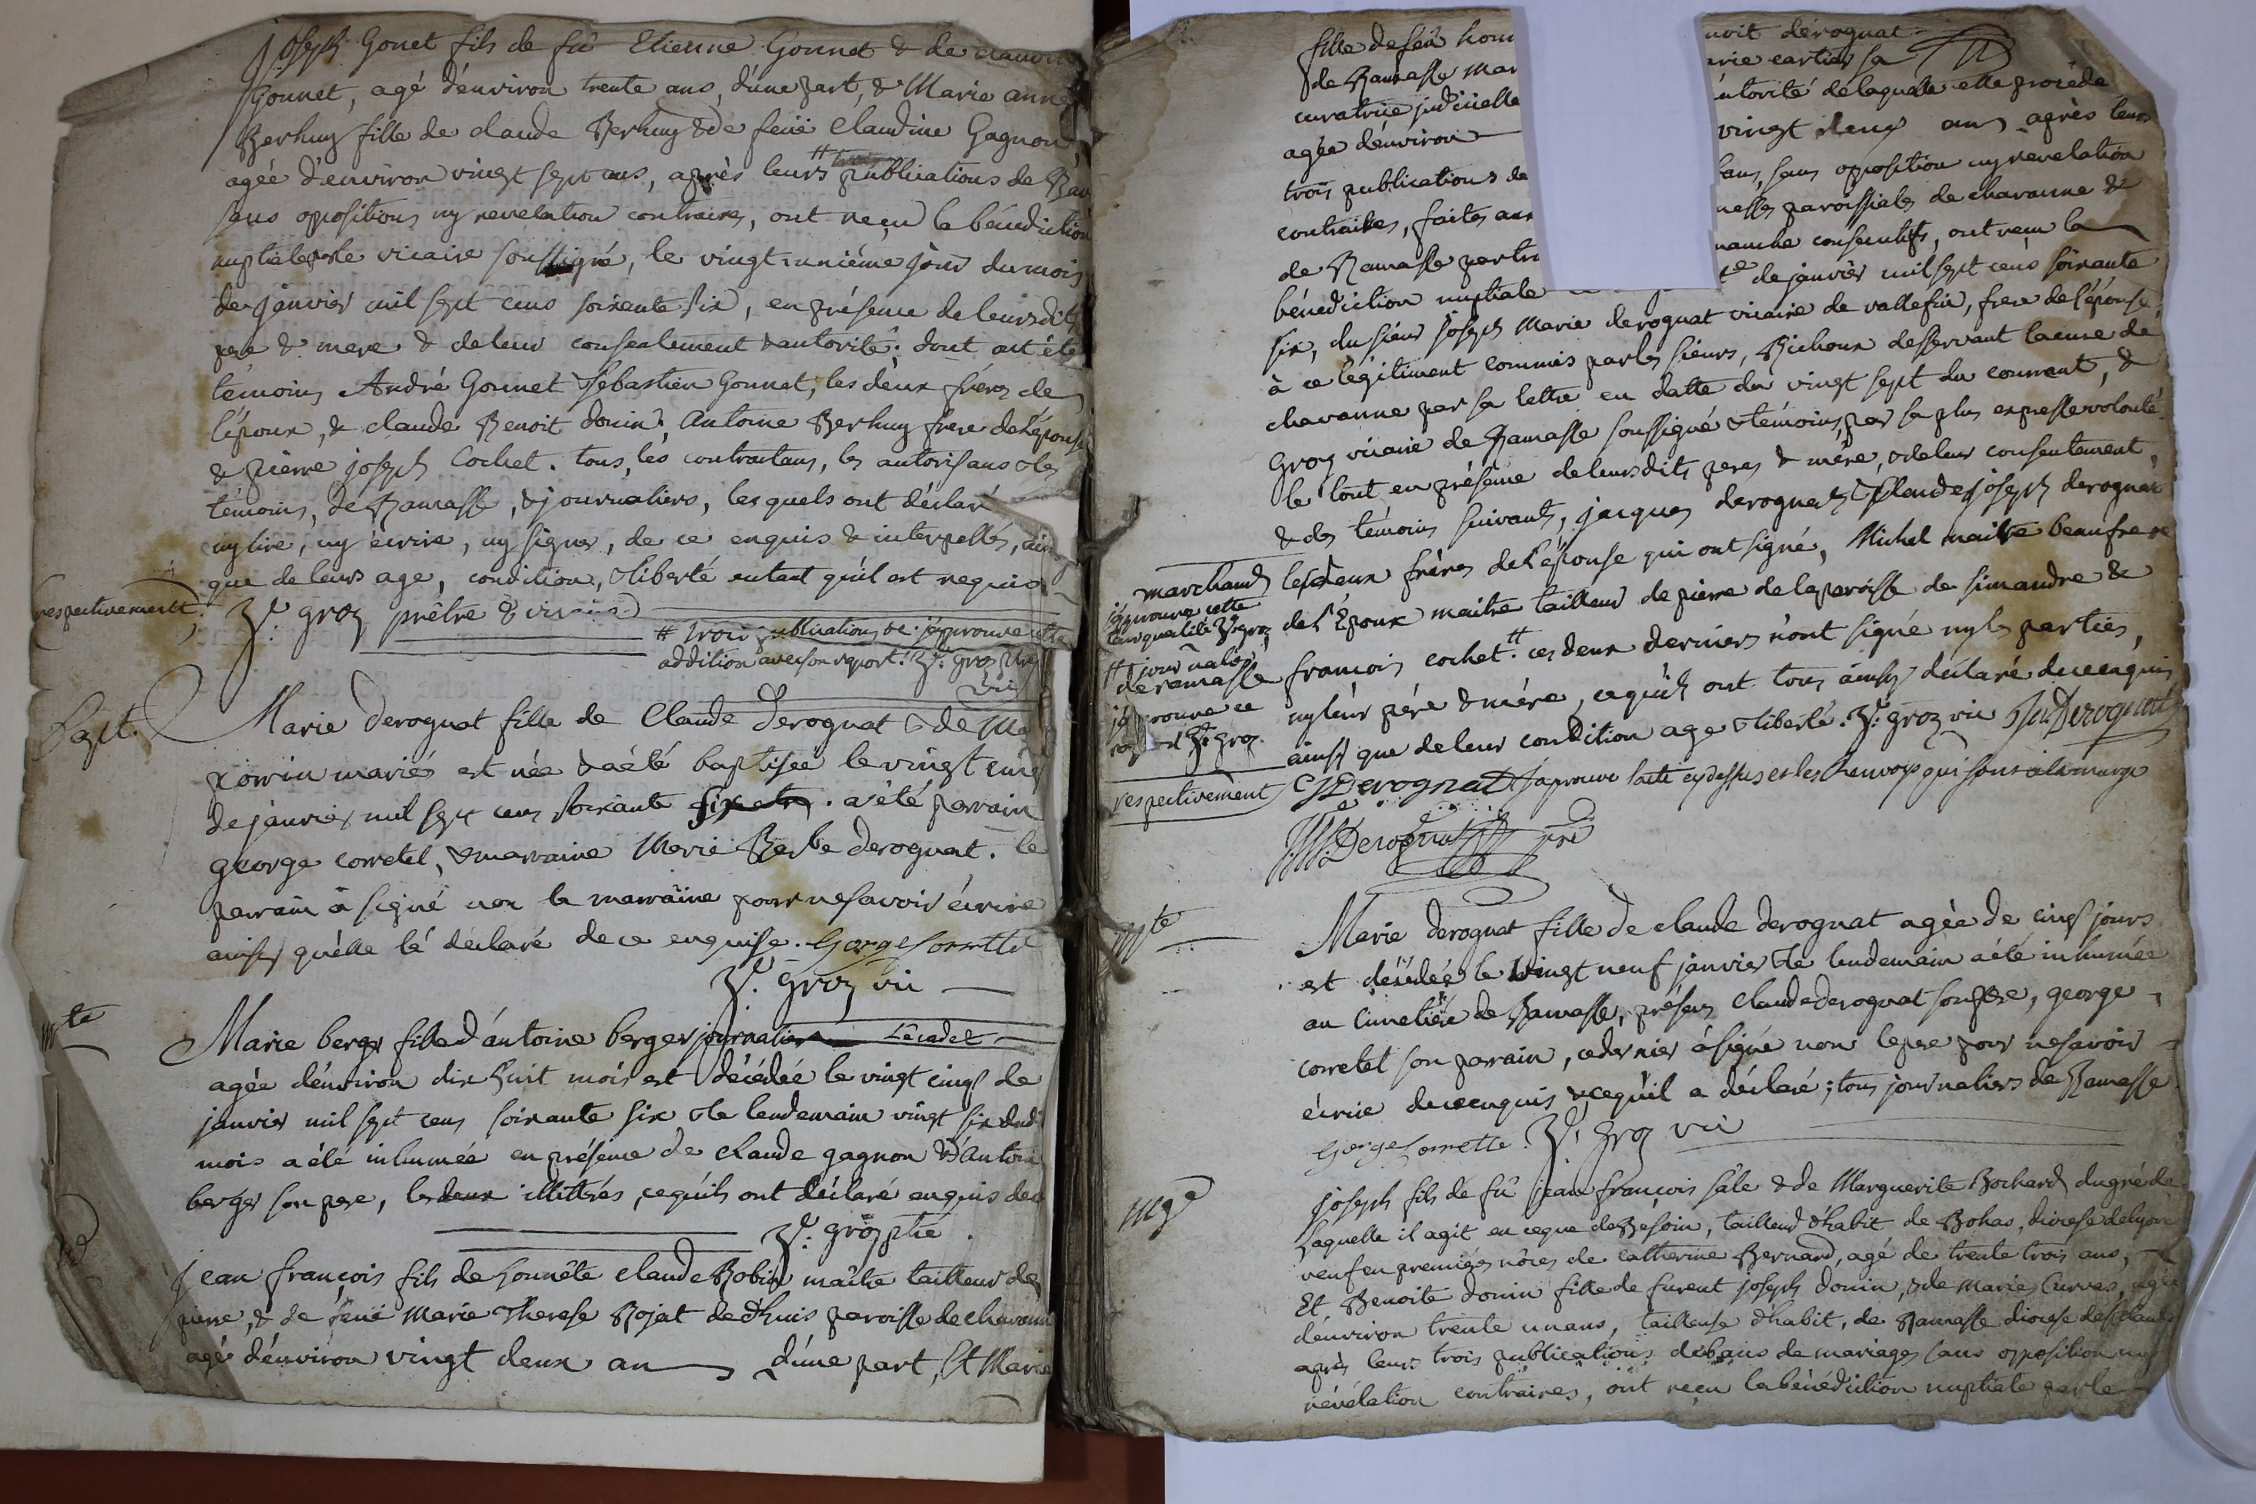 joseph Gonet fils de fû Etienne Gonnet & de claudine
Gonnet, agé d'environ trente ans, d'une part, & Marie anne
Berhuy fille de claude Berhuy & de feüe Claudine Gagnon,
agée d'environ vingt sept ans, après leurs publications de Ban
sans oppositions ny revelation contraires, ont reçu la bénédiction
nuptiale par le vicaire soussigné, le vingt unième jour du mois
de janvier mil sept cens soixante six, en présence de leursdits
pere & mere & de leur consentement & autorité; dont ont été
témoins André Gonnet & Sébastien Gonnet, les deux fréres de
l'époux, & claude Benoit donin, Antoine Berhuy frere de l'épouse
& pierre joseph Cochet. tous, les contractans, les autorisans & les
témoins, de Ramasse, & journaliers, lesquels ont déclaré
ny lire, ny écrire, ny signer, de ce enquis & interpellés, ainsi
que de leurs age, condition, & liberté autant qu'il est requis
respectivement. groz prêtre & vicaire
# trois publications &c. j'approuve cette
addition avec son raport. groz
Bapt.
Marie derognat fille de Claude derognat & de
porrin mariés est née & a été baptisée le vingt cinq
de janvier mil sept cens soixante six. a été parrain
george corretel, & marraine Marie Barbe derognat. le
parrain a signé non la marraine pour ne savoir écrire
ainsy qu'elle l'a déclaré de ce enquise. George Corrette
groz vic
mte
Marie berger fille d'antoine berger journalier Lecadet
agée d'environ dix huit mois est décédée le vingt cinq de
janvier mil sept cens soixante six & le lendemain vingt six dudt
mois a été inhumée en présence de claude gagnon & d'Antoine
berger son pere, les deux illittrés, ce qu'ils ont déclaré enquis de ce
groz ptre.
jean françois fils de honnête claude Robin maître tailleur de
pierre, & de feüe Marie Therese Rojat de dhuis paroisse de chavanne
agé d'environ vingt deux an d'une part, Et Marie
fille de feu hon
de Ramasse Mar
curatrice judicielle
agée d'environ
trois publications de
contraires, faites aux
de Ramasse par tro
noit derognat
arie cartier sa
autorité de laquelle elle procède
vingt deux ans après leurs
bans, sans opposition ny revelation
messes paroissiales de chavanne &
manche consecutifs, ont reçu la
bénédiction nuptiale te de janvier mil sept cens soixante
six, du sieur joseph Marie derognat vicaire de vallefin, frere de l'épouse,
à ce légitiment commis par les sieurs, Bichoux desservant la cure de
chavanne par sa lettre en datte du vingt sept du courant, &
Groz vicaire de Ramasse soussigné & témoins, par sa plus expresse volonté
le tout en présence de leursdits peres & mére, & de leur consentement,
& des témoins suivants, jacques derognat & Claude joseph derognat
marchands les deux fréres de l'épouse qui ont signé, Michel maitre beaufrere
j'approuve cette
de l'Epoux maitre tailleur de pierre de la paroisse de simandre &
# journalier
de ramasse
françois cochet. # ces deux derniers n'ont signé ny les parties,
j'approuve ce
groz
ny leur pére & mére, ce qu'ils ont tous ainsy déclaré de ce enquis
ainsy que de leur condition age & liberté. groz vic Derognat
respectivement CJ Derognat j'aprouve l'acte cy dessus et les Renvoys qui sont a la marge
Derognat ptre
mte
Marie derognat fille de claude derognat agée de cinq jours
est décédée le vingt neuf janvier & le lendemain a été inhumée
au cimetière de Ramasse, présens claude derognat son pere, george
corretel son parrain, ce dernier a signé non le pere pour ne savoir
écrire de ce enquis & ce qu'il a déclaré; tous journaliers de Ramasse
George Corrette. groz vic
mge
joseph fils de fû jean françois sale & de Marguerite Bochard du gré de
laquelle il agit en ce que de Besoin, tailleur d'habit de Bohas, diocese de lyon
veuf en premiéres nôces de Catherine Bernard, agé de trente trois ans,
Et Benoite donin fille de furent joseph donin, & de Marie Curvas, agée
d'environ trente un ans, tailleuse d'habit, de Ramasse diocese de st claude
après leurs trois publications de bans de mariages sans opposition ny
révélation contraires, ont reçu la bénédiction nuptiale par le